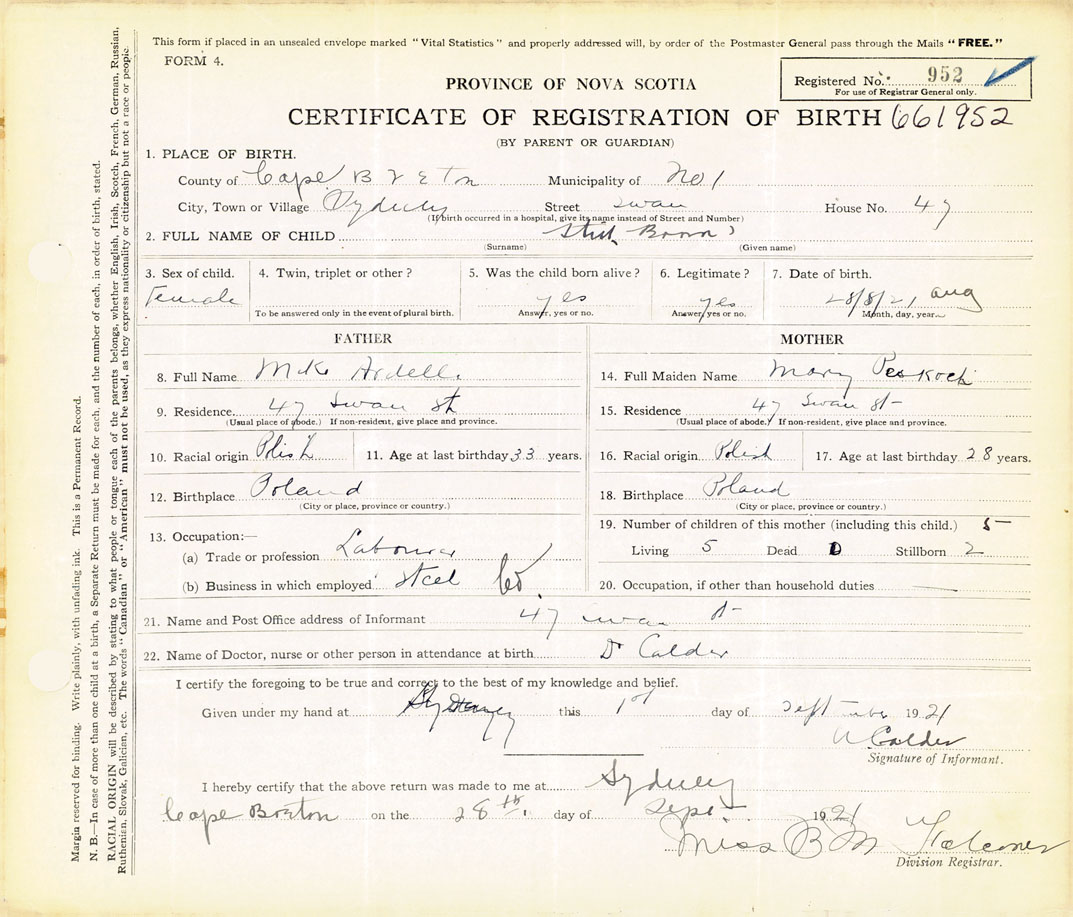 This form if placed in an unsealed envelope marked "Vital Statistics" and properly addressed will, by order of the Postmaster General pass through the Mails "FREE."
FORM 4.
Registered No. 952
For use of Registrar General only.
PROVINCE OF NOVA SCOTIA
CERTIFICATE OF REGISTRATION OF BIRTH 661952
(BY PARENT OR GUARDIAN)
1. PLACE OF BIRTH.
County of Cape Breton Municipality of No 1
City, Town or Village Sydney Street Swan House No. 47
(If birth occurred in a hospital, give its name instead of Street and Number)
2. FULL NAME OF CHILD
(Surname) (Given name)
3. Sex of child. 4. Twin, triplet or other? 5. Was the child born alive? 6. Legitimate? 7. Date of birth.
Female yes yes 28/8/21 aug
To be answered only in the event of plural birth. Answer, yes or no. Answer, yes or no. Month, day, year.
FATHER MOTHER
8. Full Name Mike 14. Full Maiden Name Mary
9. Residence 47 Swan St 15. Residence 47 Swan St
(Usual place of abode.) If non-resident, give place and province. (Usual place of abode.) If non-resident, give place and province.
10. Racial origin Polish 11. Age at last birthday 33 years. 16. Racial origin Polish 17. Age at last birthday 28 years.
12. Birthplace Poland 18. Birthplace Poland
(City or place, province or country.) (City or place, province or country.)
13. Occupation:— 19. Number of children of this mother (including this child.) 5
(a) Trade or profession Labourer Living 5 Dead 0 Stillborn 2
(b) Business in which employed Steel Co. 20. Occupation, if other than household duties
21. Name and Post Office address of Informant 47 Swan St
22. Name of Doctor, nurse or other person in attendance at birth Dr Calder
I certify the foregoing to be true and correct to the best of my knowledge and belief.
Given under my hand at Sydney this 1st day of September 1921
A Calder
Signature of Informant.
I hereby certify that the above return was made to me at Sydney
Cape Breton on the 28th day of Sept 1921
Miss B M Falconer
Division Registrar.
Margin reserved for binding. Write plainly, with unfading ink. This is a Permanent Record.
N. B.—In case of more than one child at a birth, a Separate Return must be made for each, and the number of each, in order of birth, stated.
RACIAL ORIGIN will be described by stating to what people or tongue each of the parents belongs, whether English, Irish, Scotch, French, German, Russian,
Ruthenian, Slovak, Galician, etc. The words "Canadian" or "American" must not be used, as they express nationality or citizenship but not a race or people.